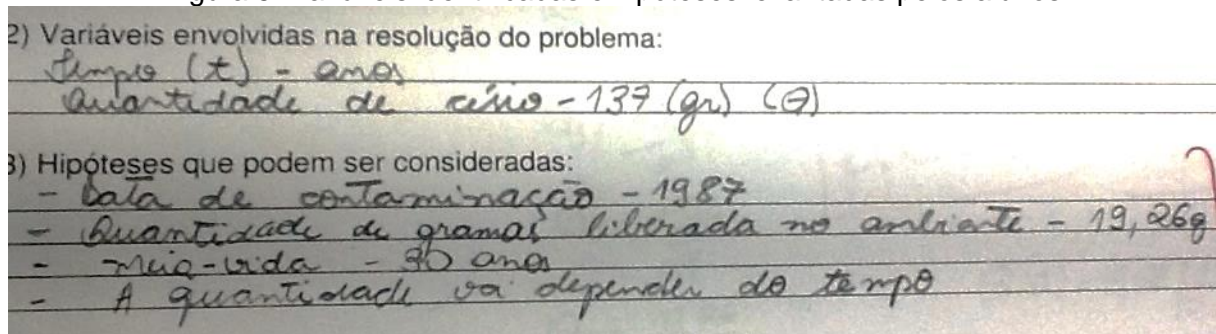 2) Variáveis envolvidas na resolução do problema:
Tempo (t) - anos
Quantidade de césio - 137 (gr) (Q)
3) Hipóteses que podem ser consideradas:
- Data de contaminação - 1987
- Quantidade de gramas liberada no ambiente - 19,26g
- meia-vida - 30 anos
- A quantidade vai depender do tempo